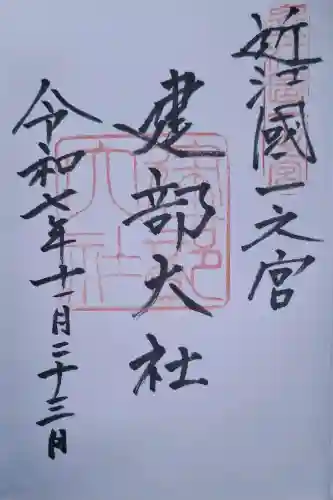 近江國一之宮
建部大社
令和七年十一月二十三日